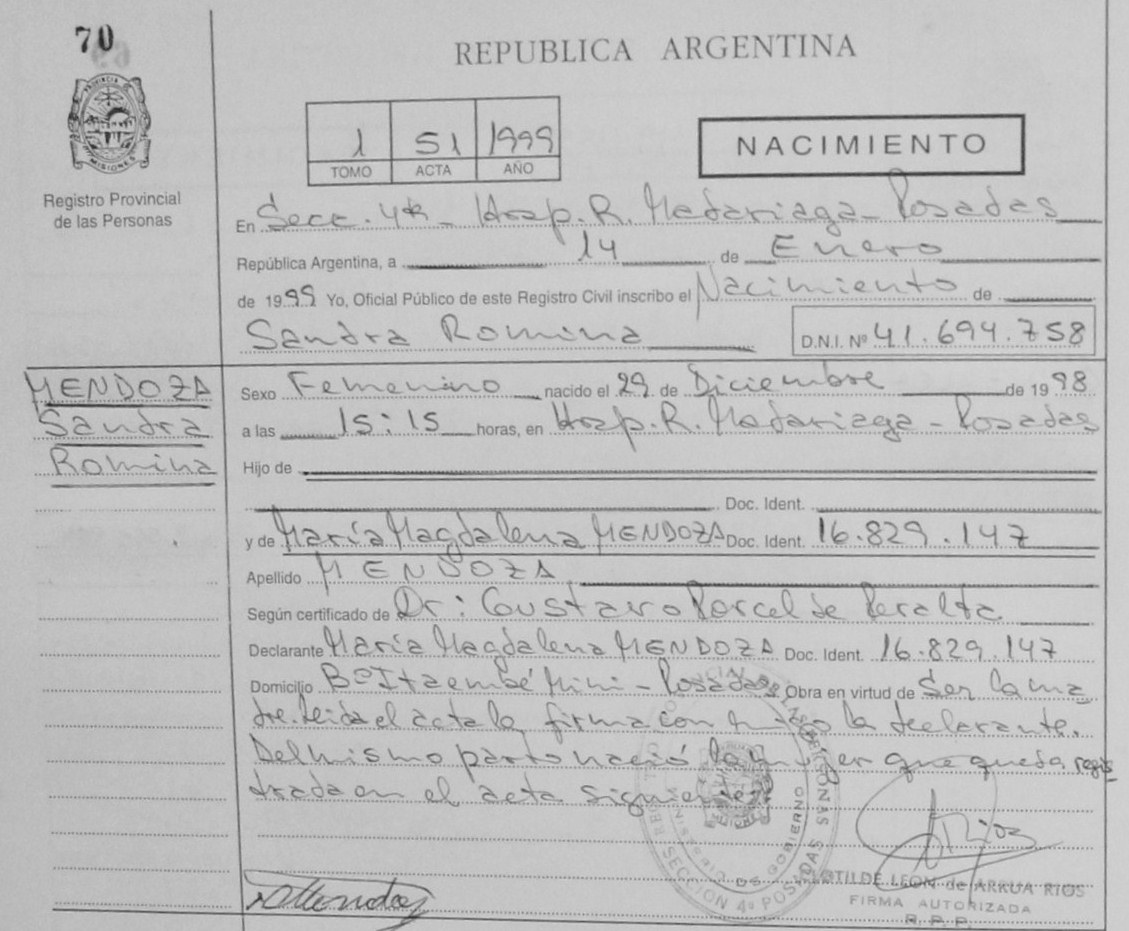 70
REPUBLICA ARGENTINA
PROVINCIA
MISIONES
1 51 1999
TOMO ACTA AÑO
NACIMIENTO
Registro Provincial
de las Personas
En Secc. 4ta - Hosp. R. Madariaga - Posadas
República Argentina, a 14 de Enero
de 1999 Yo, Oficial Público de este Registro Civil inscribo el Nacimiento de
Sandra Romina D.N.I. Nº 41.694.758
MENDOZA
Sandra
Romina
Sexo Femenino nacido el 29 de Diciembre de 1998
a las 15:15 horas, en Hosp. R. Madariaga - Posadas
Hijo de
Doc. Ident.
y de María Magdalena MENDOZA Doc. Ident. 16.829.147
Apellido MENDOZA
Según certificado de Dr: Gustavo Porcel de Peralta
Declarante María Magdalena MENDOZA Doc. Ident. 16.829.147
Domicilio Bº Itaembé Mini - Posadas Obra en virtud de Ser la ma
dre. Leida el acta la firma conmigo la declarante.
Del mismo parto nació la mujer que queda regis
trada en el acta siguiente
SECCION 4º POSADAS
MINISTERIO DE GOBIERNO
CLOTILDE LEON de ARRUA RIOS
FIRMA AUTORIZADA
R. P. P.